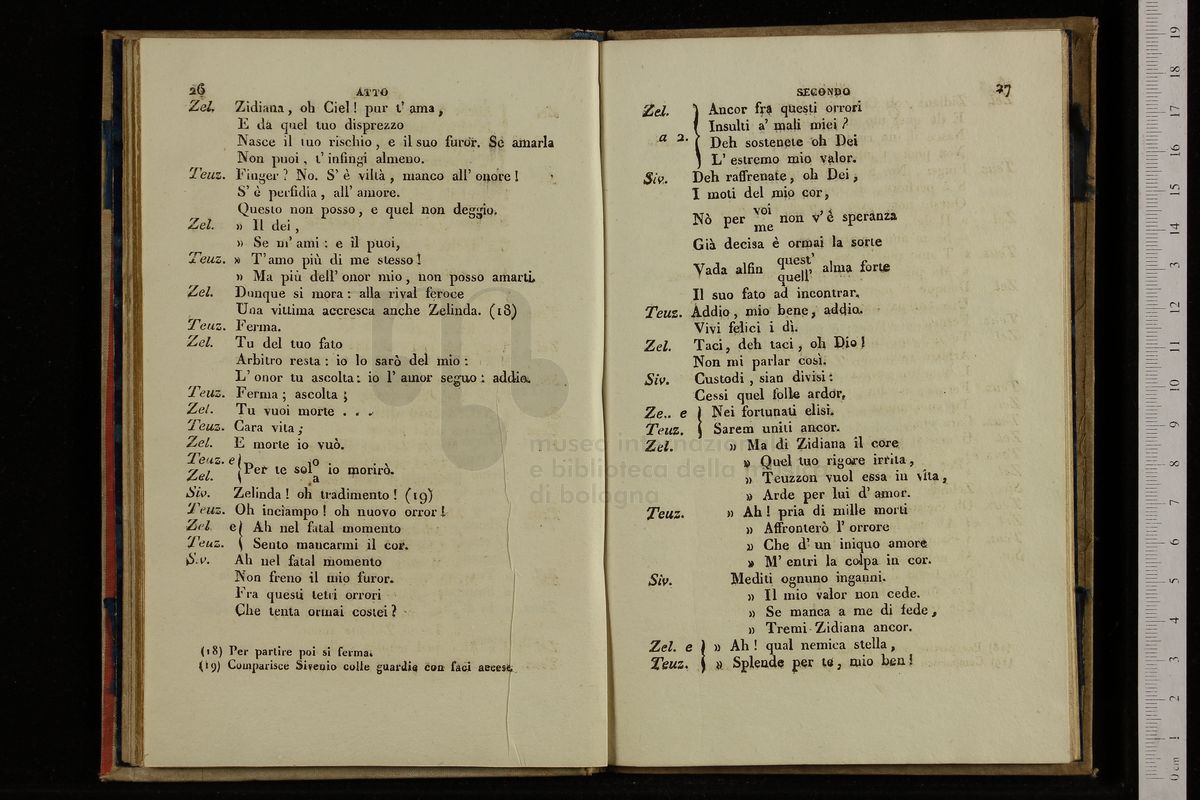 26 ATTO
Zel. Zidiana, oh Ciel! pur t' ama,
E da quel tuo disprezzo
Nasce il tuo rischio, e il suo furor. Se amarla
Non puoi, t' infingi almeno.
Teuz. Finger? No. S' è viltà, manco all' onore!
S' è perfidia, all' amore.
Questo non posso, e quel non deggio.
Zel. » Il dei,
» Se m' ami: e il puoi,
Teuz. » T'amo più di me stesso!
» Ma più dell' onor mio, non posso amarti.
Zel. Dunque si mora: alla rival feroce
Una vittima accresca anche Zelinda. (18)
Teuz. Ferma.
Zel. Tu del tuo fato
Arbitro resta: io lo sarò del mio:
L' onor tu ascolta: io l' amor seguo: addio.
Teuz. Ferma; ascolta;
Zel. Tu vuoi morte . . .
Teuz. Cara vita;
Zel. E morte io vuò.
Teuz. e
Zel. } Per te sol o/a io morirò.
Siv. Zelinda! oh tradimento! (19)
Teuz. Oh inciampo! oh nuovo orror!
Zel. e } Ah nel fatal momento
Teuz. } Sento mancarmi il cor.
Siv. Ah nel fatal momento
Non freno il mio furor.
Fra questi tetri orrori
Che tenta ormai costei?
(18) Per partire poi si ferma.
(19) Comparisce Sivenio colle guardie con faci accese.
SECONDO 27
Zel. } Ancor fra questi orrori
Insulti a' mali miei?
a 2. { Deh sostenete oh Dei
L' estremo mio valor.
Siv. Deh raffrenate, oh Dei,
I moti del mio cor,
Nò per voi/me non v' è speranza
Già decisa è ormai la sorte
Vada alfin quest'/quell' alma forte
Il suo fato ad incontrar.
Teuz. Addio, mio bene, addio.
Vivi felici i dì.
Zel. Taci, deh taci, oh Dio!
Non mi parlar così.
Siv. Custodi, sian divisi:
Cessi quel folle ardor,
Ze.. e } Nei fortunati elisi.
Teuz. } Sarem uniti ancor.
Zel. » Ma di Zidiana il core
» Quel tuo rigore irrita,
» Teuzzon vuol essa in vita,
» Arde per lui d' amor.
Teuz. » Ah! pria di mille morti
» Affronterò l' orrore
» Che d' un iniquo amore
» M' entri la colpa in cor.
Siv. Mediti ognuno inganni.
» Il mio valor non cede.
» Se manca a me di fede,
» Tremi Zidiana ancor.
Zel. e } » Ah! qual nemica stella,
Teuz. } » Splende per te, mio ben!
museo internazion
e biblioteca della musica
di bologna
0 cm 1 2 3 4 5 6 7 8 9 10 11 12 13 14 15 16 17 18 19